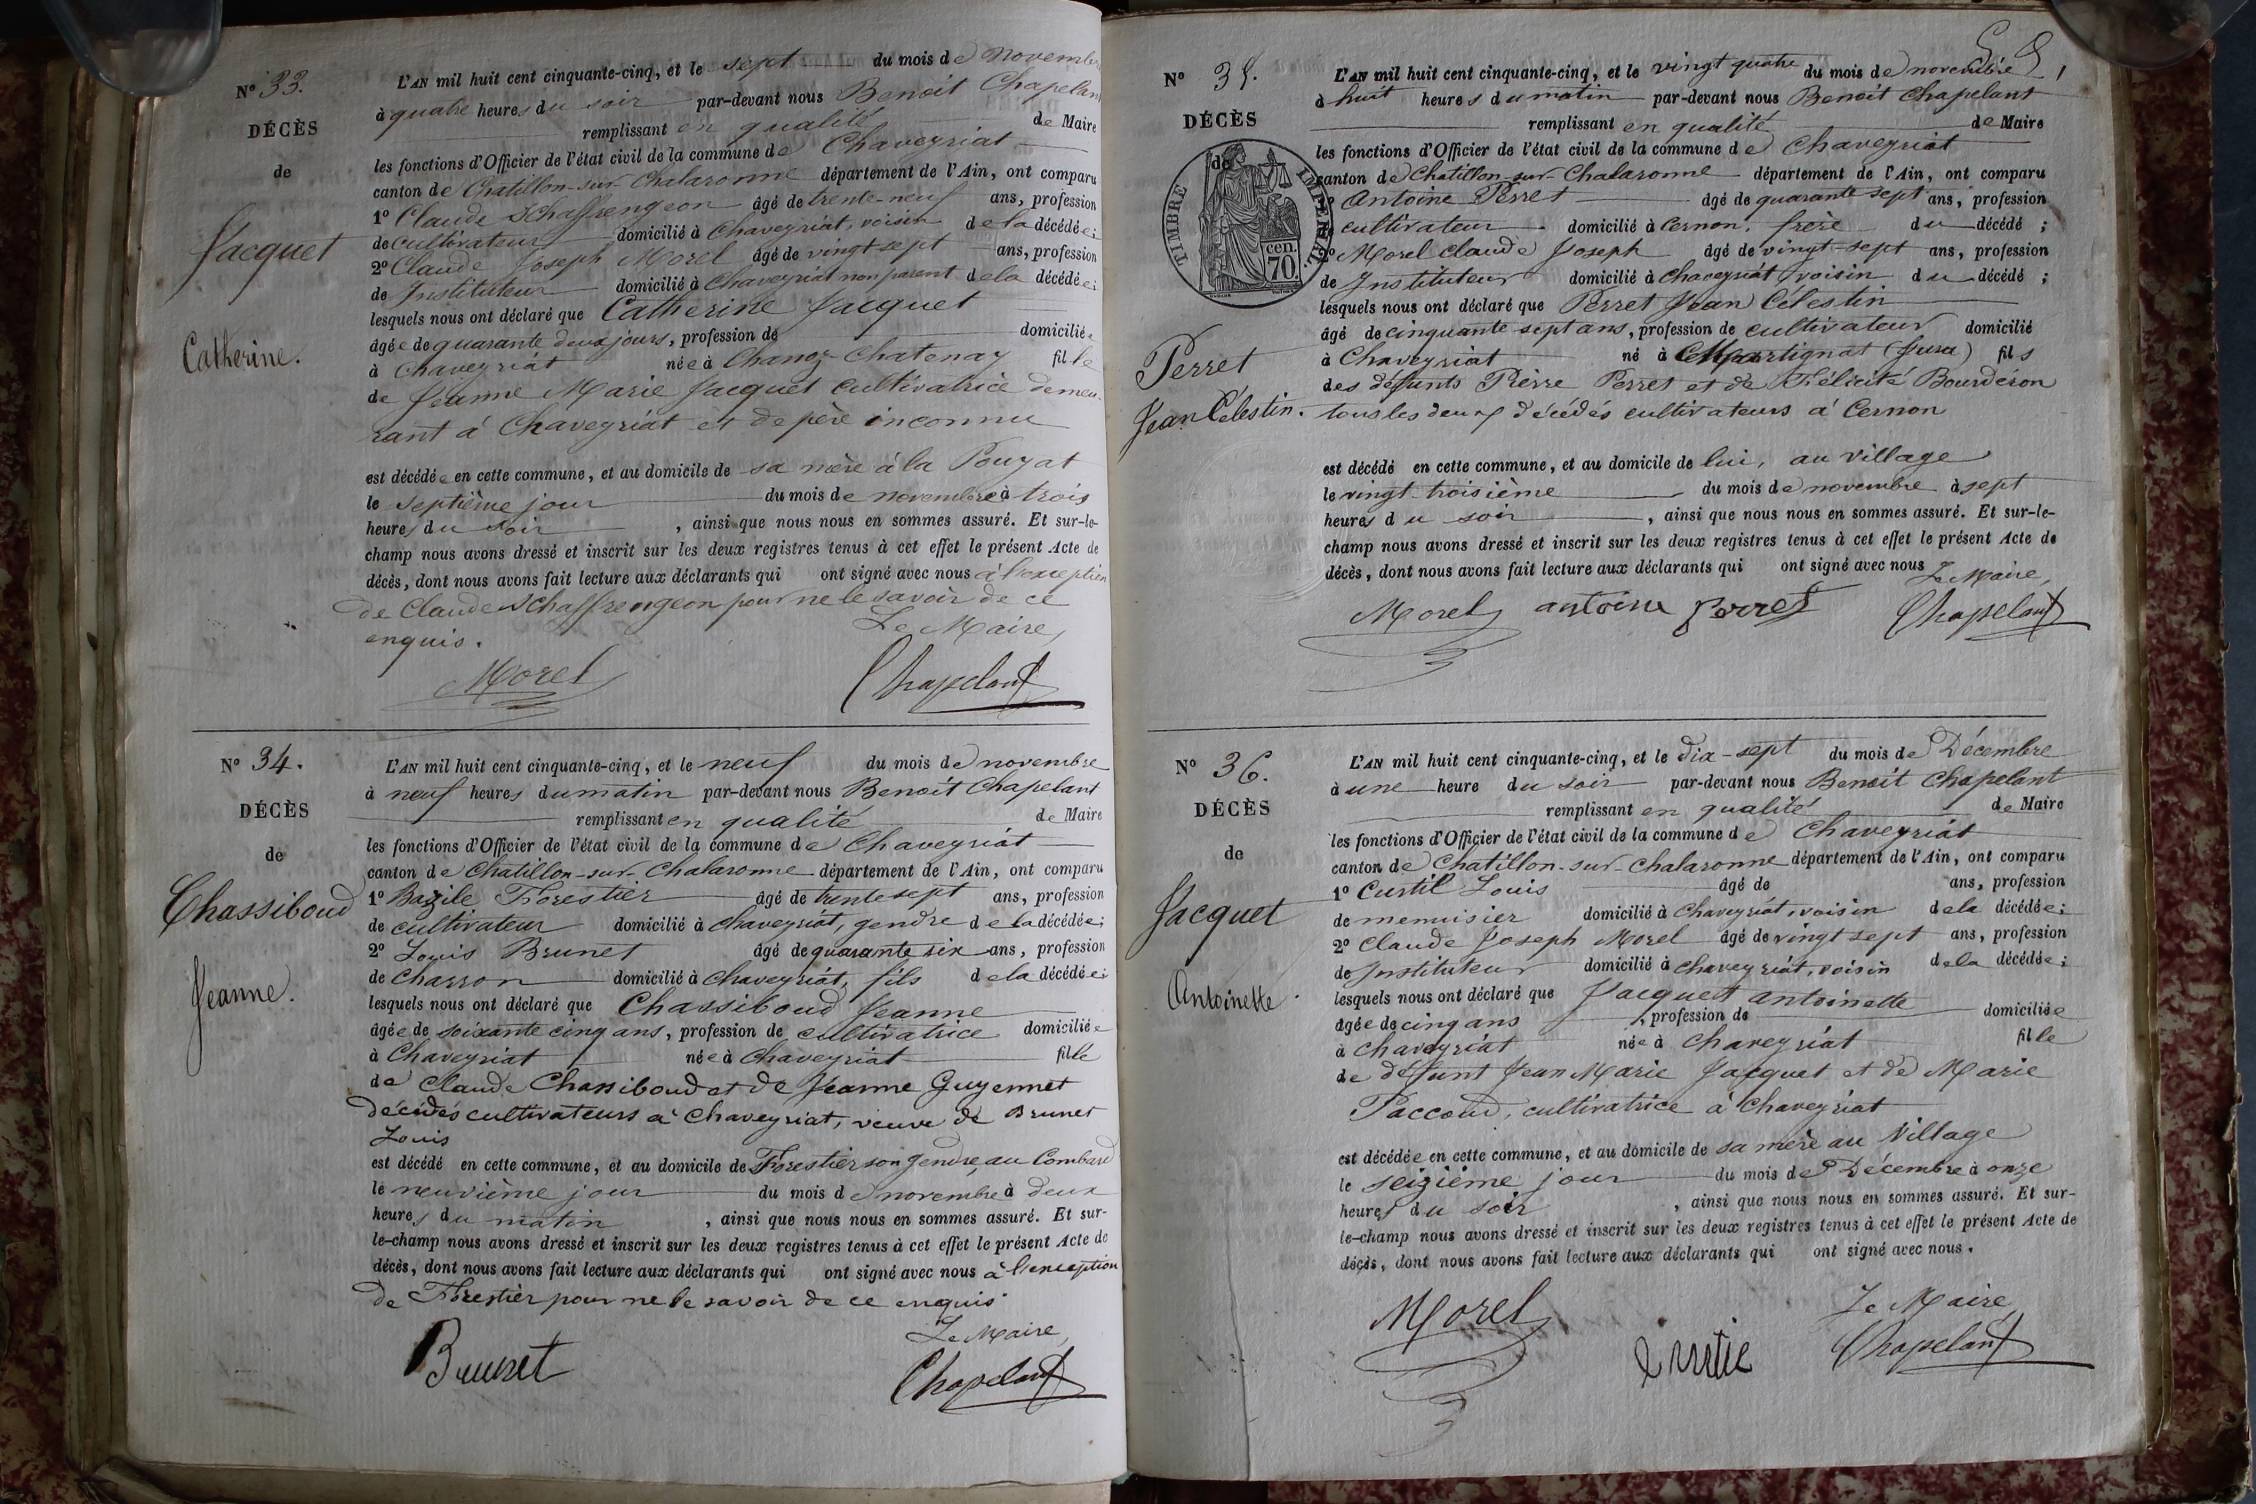 N° 33.
DÉCÈS
de
Jacquet
Catherine.
L'AN mil huit cent cinquante-cinq, et le sept du mois de novembre
à quatre heures du soir par-devant nous Benoit Chapelant
remplissant en qualité de Maire
les fonctions d'Officier de l'état civil de la commune de Chaveyriat
canton de Chatillon-sur-Chalaronne département de l'Ain, ont comparu
1° Claude Schaffrengeon âgé de trente-neuf ans, profession
de cultivateur domicilié à Chaveyriat, voisin de la décédée;
2° Claude Joseph Morel âgé de vingt-sept ans, profession
de Instituteur domicilié à Chaveyriat non parent de la décédée;
lesquels nous ont déclaré que Catherine Jacquet
âgée de quarante deux jours, profession de domiciliée
à Chaveyriat née à Chanoz-Chatenay fille
de Jeanne Marie Jacquet cultivatrice demeu-
rant à Chaveyriat et de père inconnu
est décédée en cette commune, et au domicile de sa mère à la Pouzat
le septième jour du mois de novembre à trois
heures du soir, ainsi que nous nous en sommes assuré. Et sur-le-
champ nous avons dressé et inscrit sur les deux registres tenus à cet effet le présent Acte de
décès, dont nous avons fait lecture aux déclarants qui ont signé avec nous à l'exception
de Claude Schaffrengeon pour ne le savoir de ce
enquis.
Le Maire,
Morel Chapelant
N° 34.
DÉCÈS
de
Chassiboud
Jeanne.
L'AN mil huit cent cinquante-cinq, et le neuf du mois de novembre
à neuf heures du matin par-devant nous Benoit Chapelant
remplissant en qualité de Maire
les fonctions d'Officier de l'état civil de la commune de Chaveyriat
canton de Chatillon-sur-Chalaronne département de l'Ain, ont comparu
1° Bazile Forestier âgé de trente sept ans, profession
de cultivateur domicilié à Chaveyriat, gendre de la décédée;
2° Louis Brunet âgé de quarante six ans, profession
de Charron domicilié à Chaveyriat, fils de la décédée;
lesquels nous ont déclaré que Chassiboud Jeanne
âgée de soixante cinq ans, profession de cultivatrice domiciliée
à Chaveyriat née à Chaveyriat fille
de Claude Chassiboud et de Jeanne Guyennet
décédés cultivateurs à Chaveyriat, veuve de Brunet
Louis
est décédé en cette commune, et au domicile de Forestier son gendre, au Combard
le neuvième jour du mois de novembre à deux
heures du matin, ainsi que nous nous en sommes assuré. Et sur-
le-champ nous avons dressé et inscrit sur les deux registres tenus à cet effet le présent Acte de
décès, dont nous avons fait lecture aux déclarants qui ont signé avec nous à l'exception
de Forestier pour ne le savoir de ce enquis.
Le Maire,
Brunet Chapelant
N° 35.
DÉCÈS
de
TIMBRE IMPERIAL
70 cen.
Perret
Jean Célestin.
L'AN mil huit cent cinquante-cinq, et le vingt quatre du mois de novembre
à huit heures du matin par-devant nous Benoit Chapelant
remplissant en qualité de Maire
les fonctions d'Officier de l'état civil de la commune de Chaveyriat
canton de Chatillon-sur-Chalaronne département de l'Ain, ont comparu
Antoine Perret âgé de quarante sept ans, profession
cultivateur domicilié à Cernon, frère du décédé;
2° Morel Claude Joseph âgé de vingt-sept ans, profession
de Instituteur domicilié à Chaveyriat, voisin du décédé;
lesquels nous ont déclaré que Perret Jean Célestin
âgé de cinquante sept ans, profession de cultivateur domicilié
à Chaveyriat né à Martignat (Jura) fils
des défunts Pierre Perret et de Félicité Bourderon
tous les deux décédés cultivateurs à Cernon
est décédé en cette commune, et au domicile de lui, au village
le vingt-troisième du mois de novembre à sept
heures du soir, ainsi que nous nous en sommes assuré. Et sur-le-
champ nous avons dressé et inscrit sur les deux registres tenus à cet effet le présent Acte de
décès, dont nous avons fait lecture aux déclarants qui ont signé avec nous
Le Maire,
Morel antoine Perret Chapelant
N° 36.
DÉCÈS
de
Jacquet
Antoinette.
L'AN mil huit cent cinquante-cinq, et le dix-sept du mois de Décembre
à une heure du soir par-devant nous Benoit Chapelant
remplissant en qualité de Maire
les fonctions d'Officier de l'état civil de la commune de Chaveyriat
canton de Chatillon-sur-Chalaronne département de l'Ain, ont comparu
1° Curtil Louis âgé de ans, profession
de menuisier domicilié à Chaveyriat, voisin de la décédée;
2° Claude Joseph Morel âgé de vingt sept ans, profession
de Instituteur domicilié à Chaveyriat, voisin de la décédée;
lesquels nous ont déclaré que Jacquet antoinette
âgée de cinq ans, profession de domiciliée
à Chaveyriat née à Chaveyriat fille
de défunt Jean Marie Jacquet et de Marie
Paccoud, cultivatrice à Chaveyriat
est décédée en cette commune, et au domicile de sa mère au Village
le seizième jour du mois de Décembre à onze
heures du soir, ainsi que nous nous en sommes assuré. Et sur-
le-champ nous avons dressé et inscrit sur les deux registres tenus à cet effet le présent Acte de
décès, dont nous avons fait lecture aux déclarants qui ont signé avec nous.
Le Maire,
Morel Chapelant